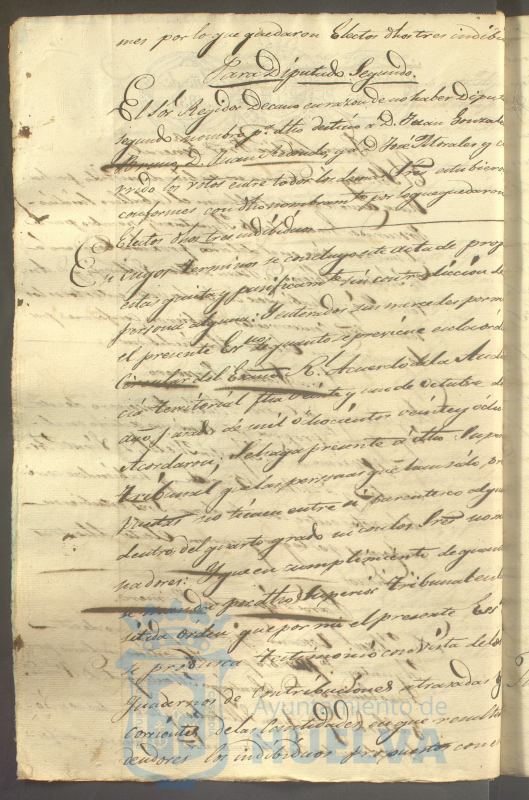 mes por lo que quedaron Electos dhos tres indibi
Para Diputado Segundo.
El Sor Regidor Decano en razon de no haber Diputa
segundo nombra pa dho destino a D. Juan Gonzale
D. Juan y a D. José Morales y c
rrido los votos entre todos los demas Sres estubieron
conformes con dho nombramto por lo que quedaron
Electos dhos tres indibiduos
En cuyos terminos se concluyo este acto de prop
estas quieta y pacificamte sin contradiccion de
persona alguna: Y enterados sus mercedes por m
el presente Esno de quanto se previene en la orde
Circular del R. Acuerdo de la Audi
cia territorial fha veinte y uno de octubre de
año pasado de mil ochocientos veinte y ocho
Acordaron; Se haga presente a dho Superior
Tribunal que las personas que han sido pro
puestas no tienen entre si parentesco alguno
dentro del quarto grado ni con los Sres nomi
nadores: Y que en cumplimiento de quanto
se manda pr dho Superior Tribunal en la
citada orden, que por mi el presente Es
se produzca testimonio en vista de los
quadernos de contribuciones atrasadas y
corrientes de las cantidades en que resultan
deudores los indibiduos propuestos con
Ayuntamiento de
HUELVA